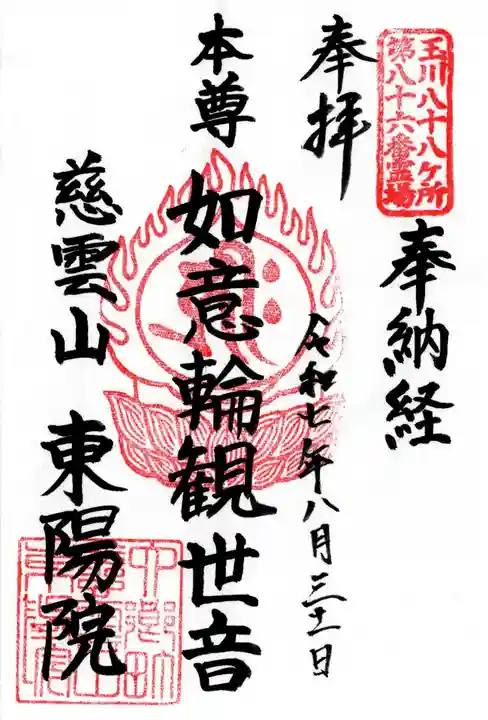 玉川八十八ケ所
第八十六番霊場
奉納経
奉拝
令和七年八月三十一日
本尊
如意輪観世音
慈雲山 東陽院